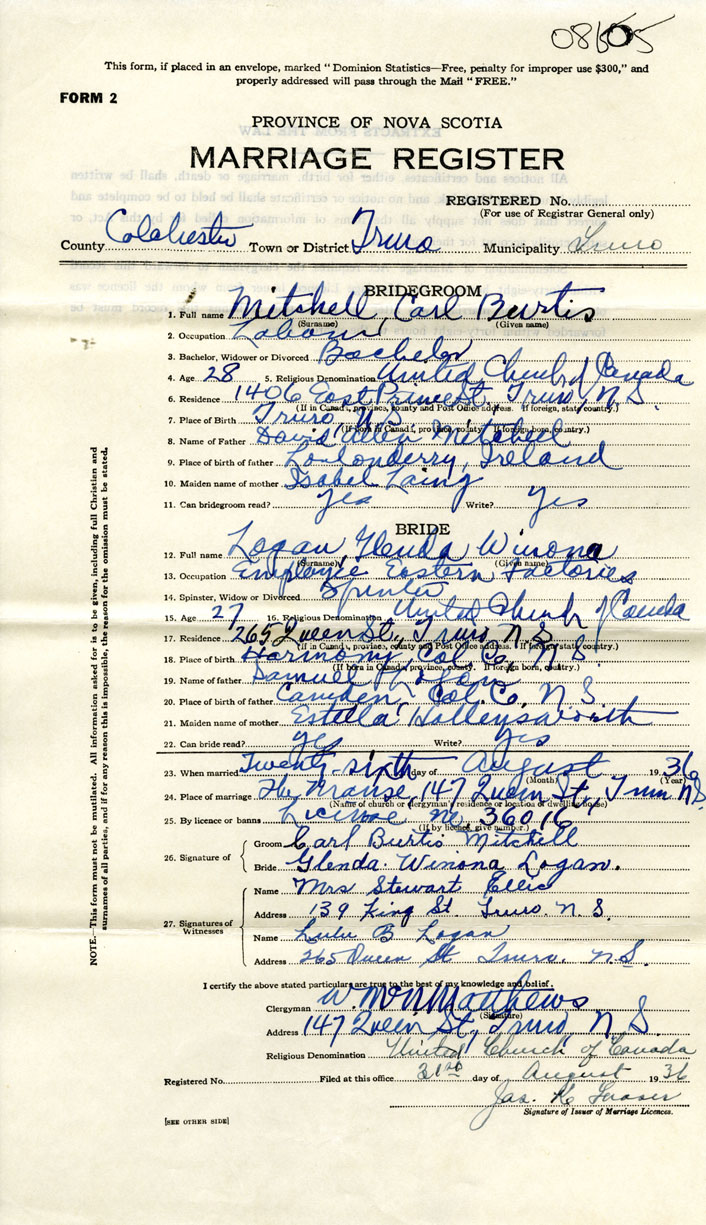 This form, if placed in an envelope, marked "Dominion Statistics—Free, penalty for improper use $300," and
properly addressed will pass through the Mail "FREE."
FORM 2
PROVINCE OF NOVA SCOTIA
MARRIAGE REGISTER
REGISTERED No.
(For use of Registrar General only)
County Colchester Town or District Truro Municipality Truro
BRIDEGROOM
1. Full name Mitchell, Carl Burtis
(Surname) (Given name)
2. Occupation Labour
3. Bachelor, Widower or Divorced Bachelor
4. Age 28 5. Religious Denomination United Church of Canada
6. Residence 1406 East Prince St. Truro, N.S.
(If in Canada, province, county and Post Office address. If foreign, state country.)
7. Place of Birth Truro N.S.
(If born in Canada, province, county. If foreign born, country.)
8. Name of Father David Allen Mitchell
9. Place of birth of father Londonderry, Ireland
10. Maiden name of mother Isabel Laing
11. Can bridegroom read? yes Write? yes
BRIDE
12. Full name Logan, Glenda Winona
(Surname) (Given name)
13. Occupation Employee Eastern Factories
14. Spinster, Widow or Divorced Spinster
15. Age 27 16. Religious Denomination United Church of Canada
17. Residence 265 Queen St., Truro N.S.
(If in Canada, province, county and Post Office address. If foreign, state country.)
18. Place of birth Harmony, Col. Co., N.S.
(If born in Canada, province, county. If foreign born, country.)
19. Name of father Samuel Logan
20. Place of birth of father Camden, Col. Co. N.S.
21. Maiden name of mother Estella Hollensworth
22. Can bride read? yes Write? yes
23. When married Twenty-sixth day of August 1936
(Month) (Year)
24. Place of marriage The Manse, 147 Queen St., Truro N.S.
(Name of church or clergyman's residence or location of dwelling house)
25. By licence or banns License no. 36016
(If by licence, give number.)
26. Signature of
Groom Carl Burtis Mitchell
Bride Glenda Winona Logan.
27. Signatures of Witnesses
Name Mrs Stewart Ellis
Address 139 King St Truro. N.S.
Name Lulu B Logan
Address 265 Queen St Truro. N.S.
I certify the above stated particulars are true to the best of my knowledge and belief.
Clergyman W. Matthews
(Signature)
Address 147 Queen St., Truro, N.S.
Religious Denomination United Church of Canada
Registered No. Filed at this office 31st day of August 1936
Jas. K Fraser
Signature of Issuer of Marriage Licences.
[SEE OTHER SIDE]
NOTE.—This form must not be mutilated. All information asked for is to be given, including full Christian and
surnames of all parties, and if for any reason this is impossible, the reason for the omission must be stated.